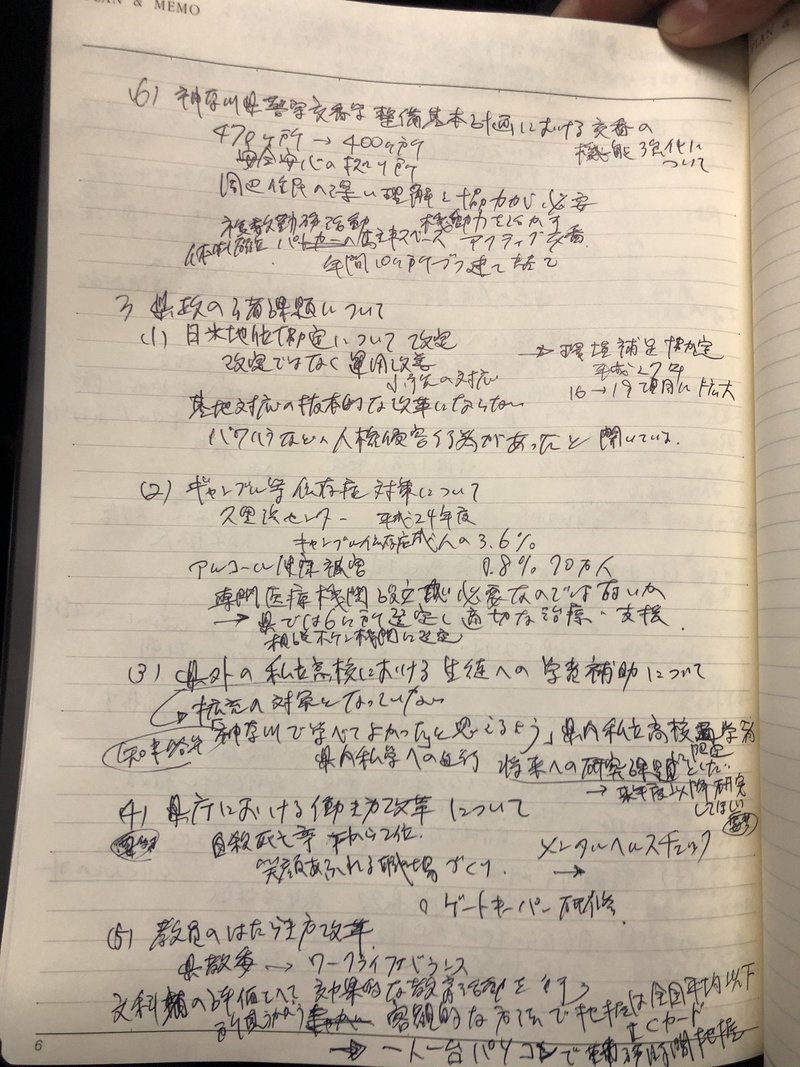 PLAN & MEMO
(6) 神奈川県警察交番等整備基本計画における交番の
機能強化に
ついて
470ヶ所 → 400ヶ所
安全安心の拠り所
周辺住民へ深い理解と協力が必要
複数勤務 活動 機動力を活かす
体制確立 パトカーへ 駐車スペース アクティブ交番
年間10ヶ所ずつ建て
3 県政の諸課題について
(1) 日米地位協定について 改定
改定ではなく運用改善
の対応
→ 環境補足協定
平成27年
16→19項目に拡大
基地対応の抜本的な改革にならない
パワハラなど、人権侵害行為があったと聞いている.
(2) ギャンブル等依存症対策について
久里浜センター 平成24年度
ギャンブル依存症成人の3.6%
アルコール健康被害 0.8% 90万人
専門医療機関 設立 必要なのではないか
→ 県では6ヶ所選定し適切な治療・支援
相談 機関に選定
(3) 県外の私立高校における生徒への学費補助について
拡充の対象となっていない
知事答弁
「神奈川で学べてよかったと思えるよう」県内私立高校通学者
限定
県内私学への 将来への研究課題としたい
→ 来年度以降研究
してほしい
要望
(4) 県庁における働き方改革について
自殺死亡率 2位.
笑顔あふれる職場づくり. → メンタルヘルスチェック
ゲートキーパー研修.
(5) 教員のはたらき方改革
県教委 → ワークライフバランス
文科省の評価として 効果的な教育活動を行う
客観的な方法で把握は全国平均以下
ICカード
→ 一人一台パソコンで 時間把握
6